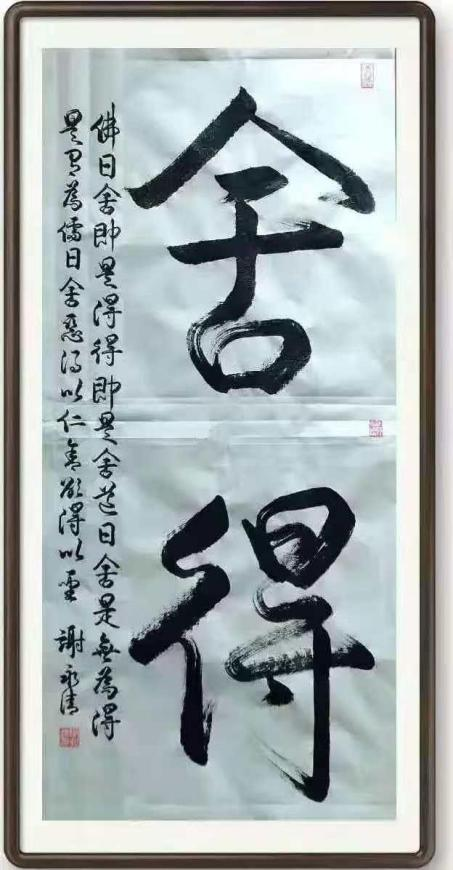 舍得
佛曰舍即是得得即是舍道曰舍是無為得
是有為儒曰舍惡得以仁舍欲得以聖
謝永清